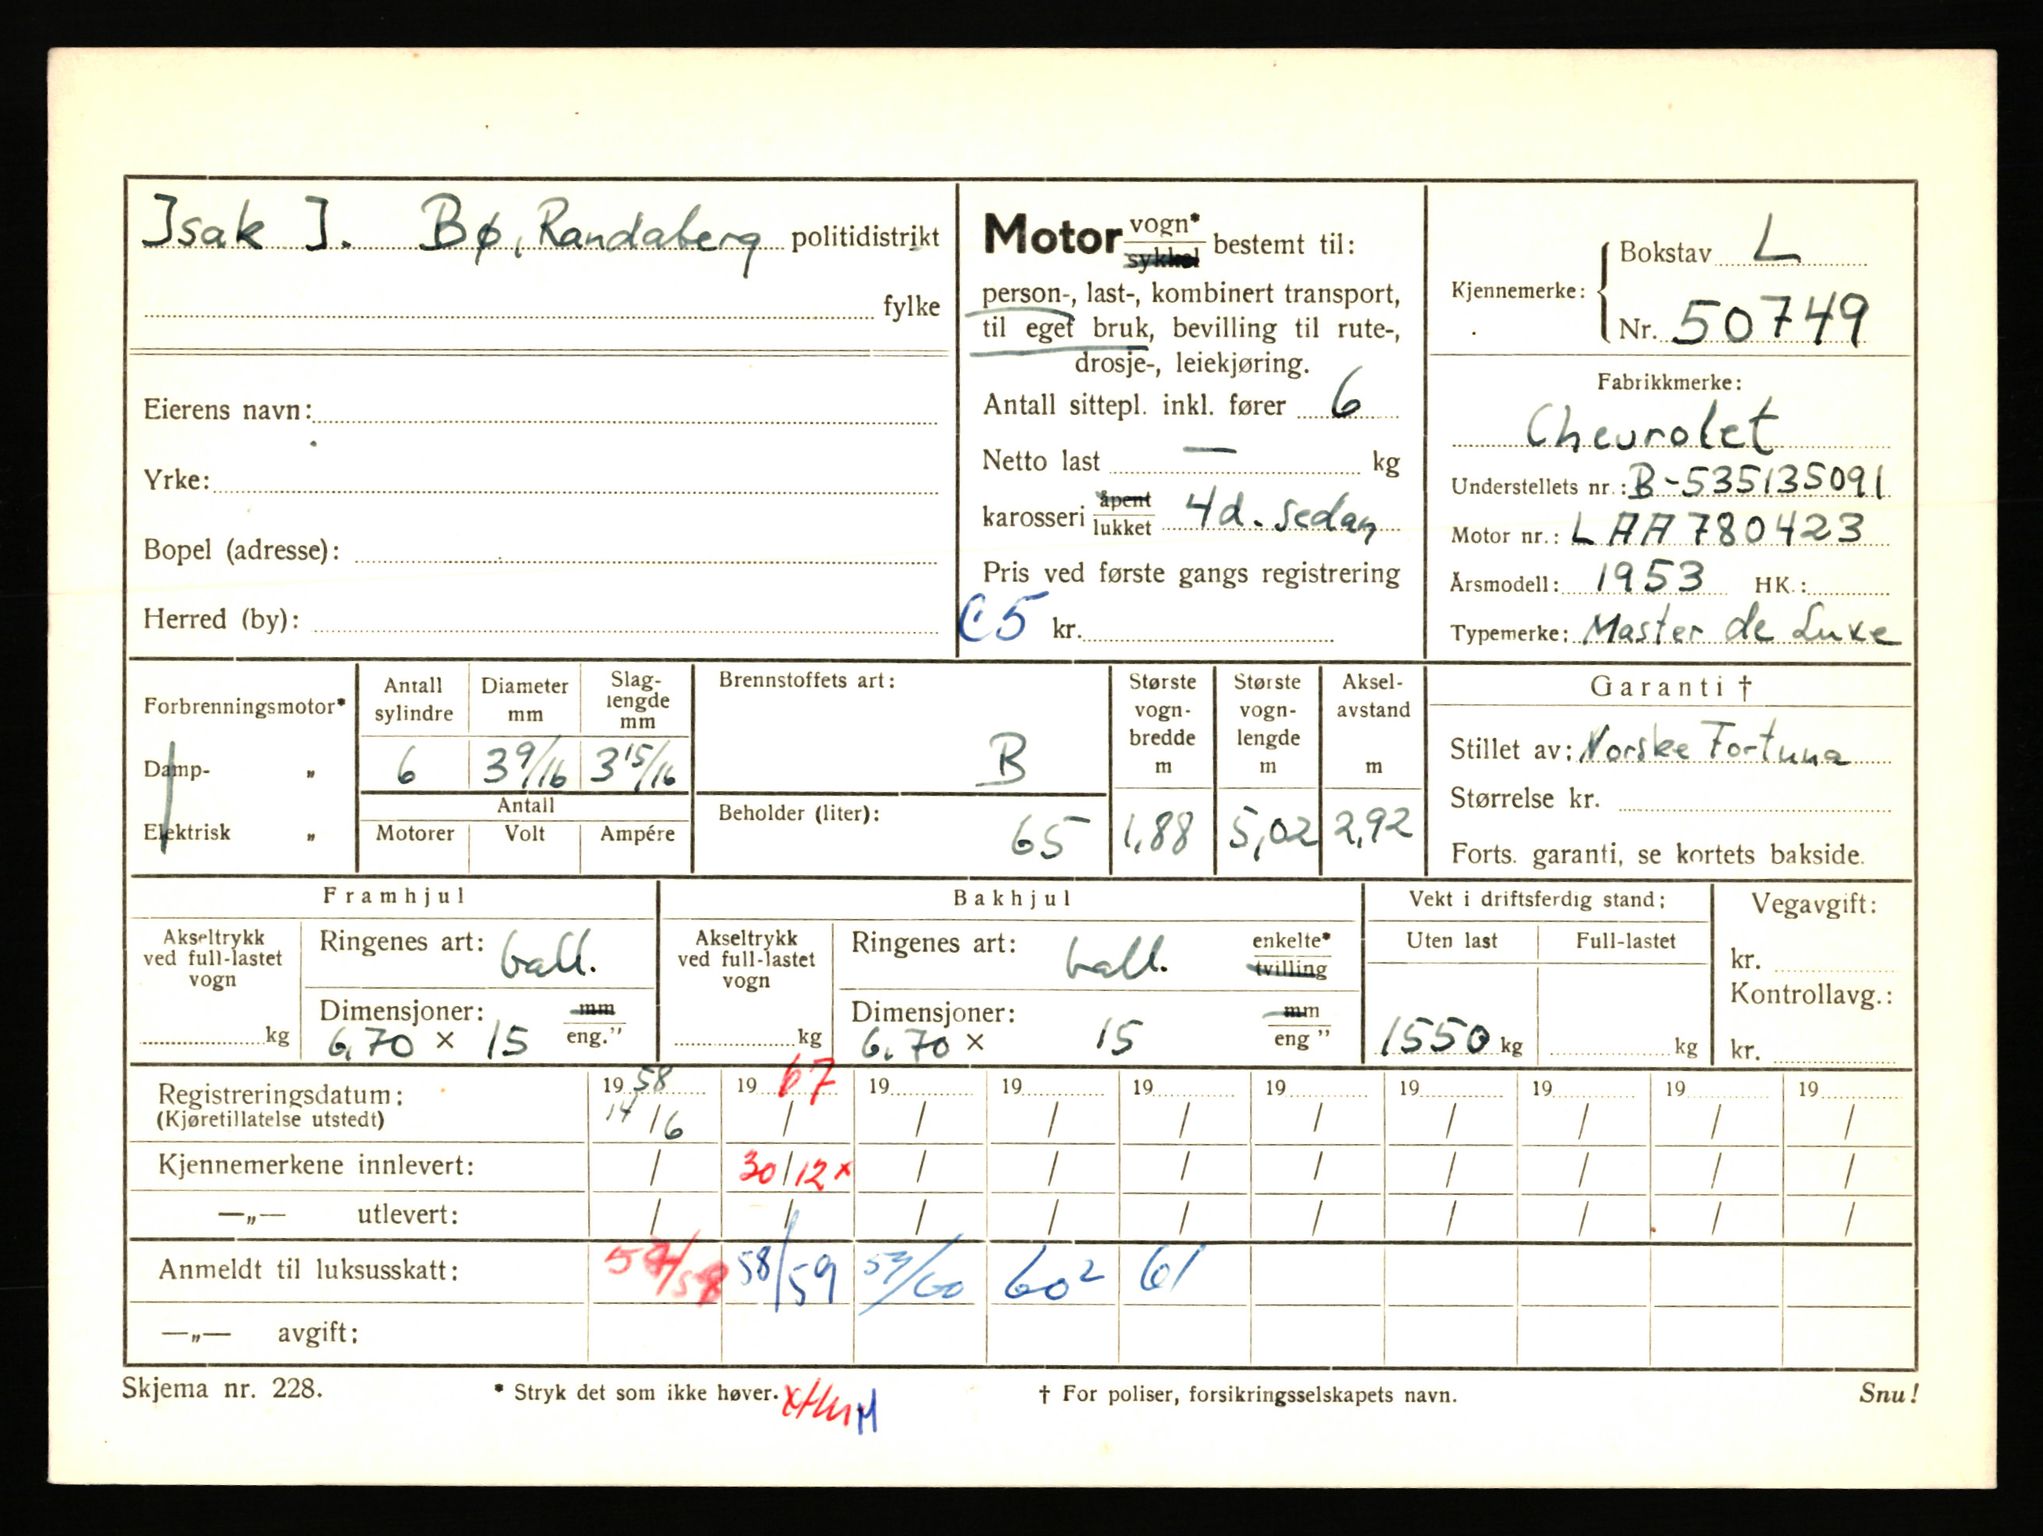 Isak I. Bø, Randaberg politidistrikt
fylke
Eierens navn:
Yrke:
Bopel (adresse):
Herred (by):
Motor vogn* sykkel bestemt til:
person-, last-, kombinert transport,
til eget bruk, bevilling til rute-,
drosje-, leiekjøring.
Antall sittepl. inkl. fører 6
Netto last — kg
karosseri åpent lukket 4d. sedan
Pris ved første gangs registrering
C5 kr.
Kjennemerke: Bokstav L
Nr. 50749
Fabrikkmerke:
Chevrolet
Understellets nr.: B-535135091
Motor nr.: LAA780423
Årsmodell: 1953 HK.:
Typemerke: Master de Luxe
Forbrenningsmotor*
Damp- „
Elektrisk „
Antall sylindre
Diameter mm
Slag-lengde mm
6 3 9/16 3 15/16
Antall
Motorer Volt Ampére
Brennstoffets art:
B
Beholder (liter):
65
Største vogn-bredde m
1,88
Største vogn-lengde m
5,02
Aksel-avstand m
2,92
Garanti †
Stillet av: Norske Fortuna
Størrelse kr.
Forts. garanti, se kortets bakside.
Framhjul
Akseltrykk ved full-lastet vogn
kg
Ringenes art: ball.
Dimensjoner: mm
6,70 × 15 eng."
Bakhjul
Akseltrykk ved full-lastet vogn
kg
Ringenes art: ball. enkelte* tvilling
Dimensjoner: mm
6.70 × 15 eng "
Vekt i driftsferdig stand:
Uten last Full-lastet
1550 kg kg
Vegavgift:
kr.
Kontrollavg.:
kr.
Registreringsdatum: 19 58 19 67 19 19 19 19 19 19 19 19
(Kjøretillatelse utstedt) 14/6 / / / / / / / / /
Kjennemerkene innlevert: / 30/12 x / / / / / / / /
—„— utlevert: / / / / / / / / / /
Anmeldt til luksusskatt: 58/59 59/60 60² 61
—„— avgift:
Skjema nr. 228. * Stryk det som ikke høver. † For poliser, forsikringsselskapets navn. Snu!